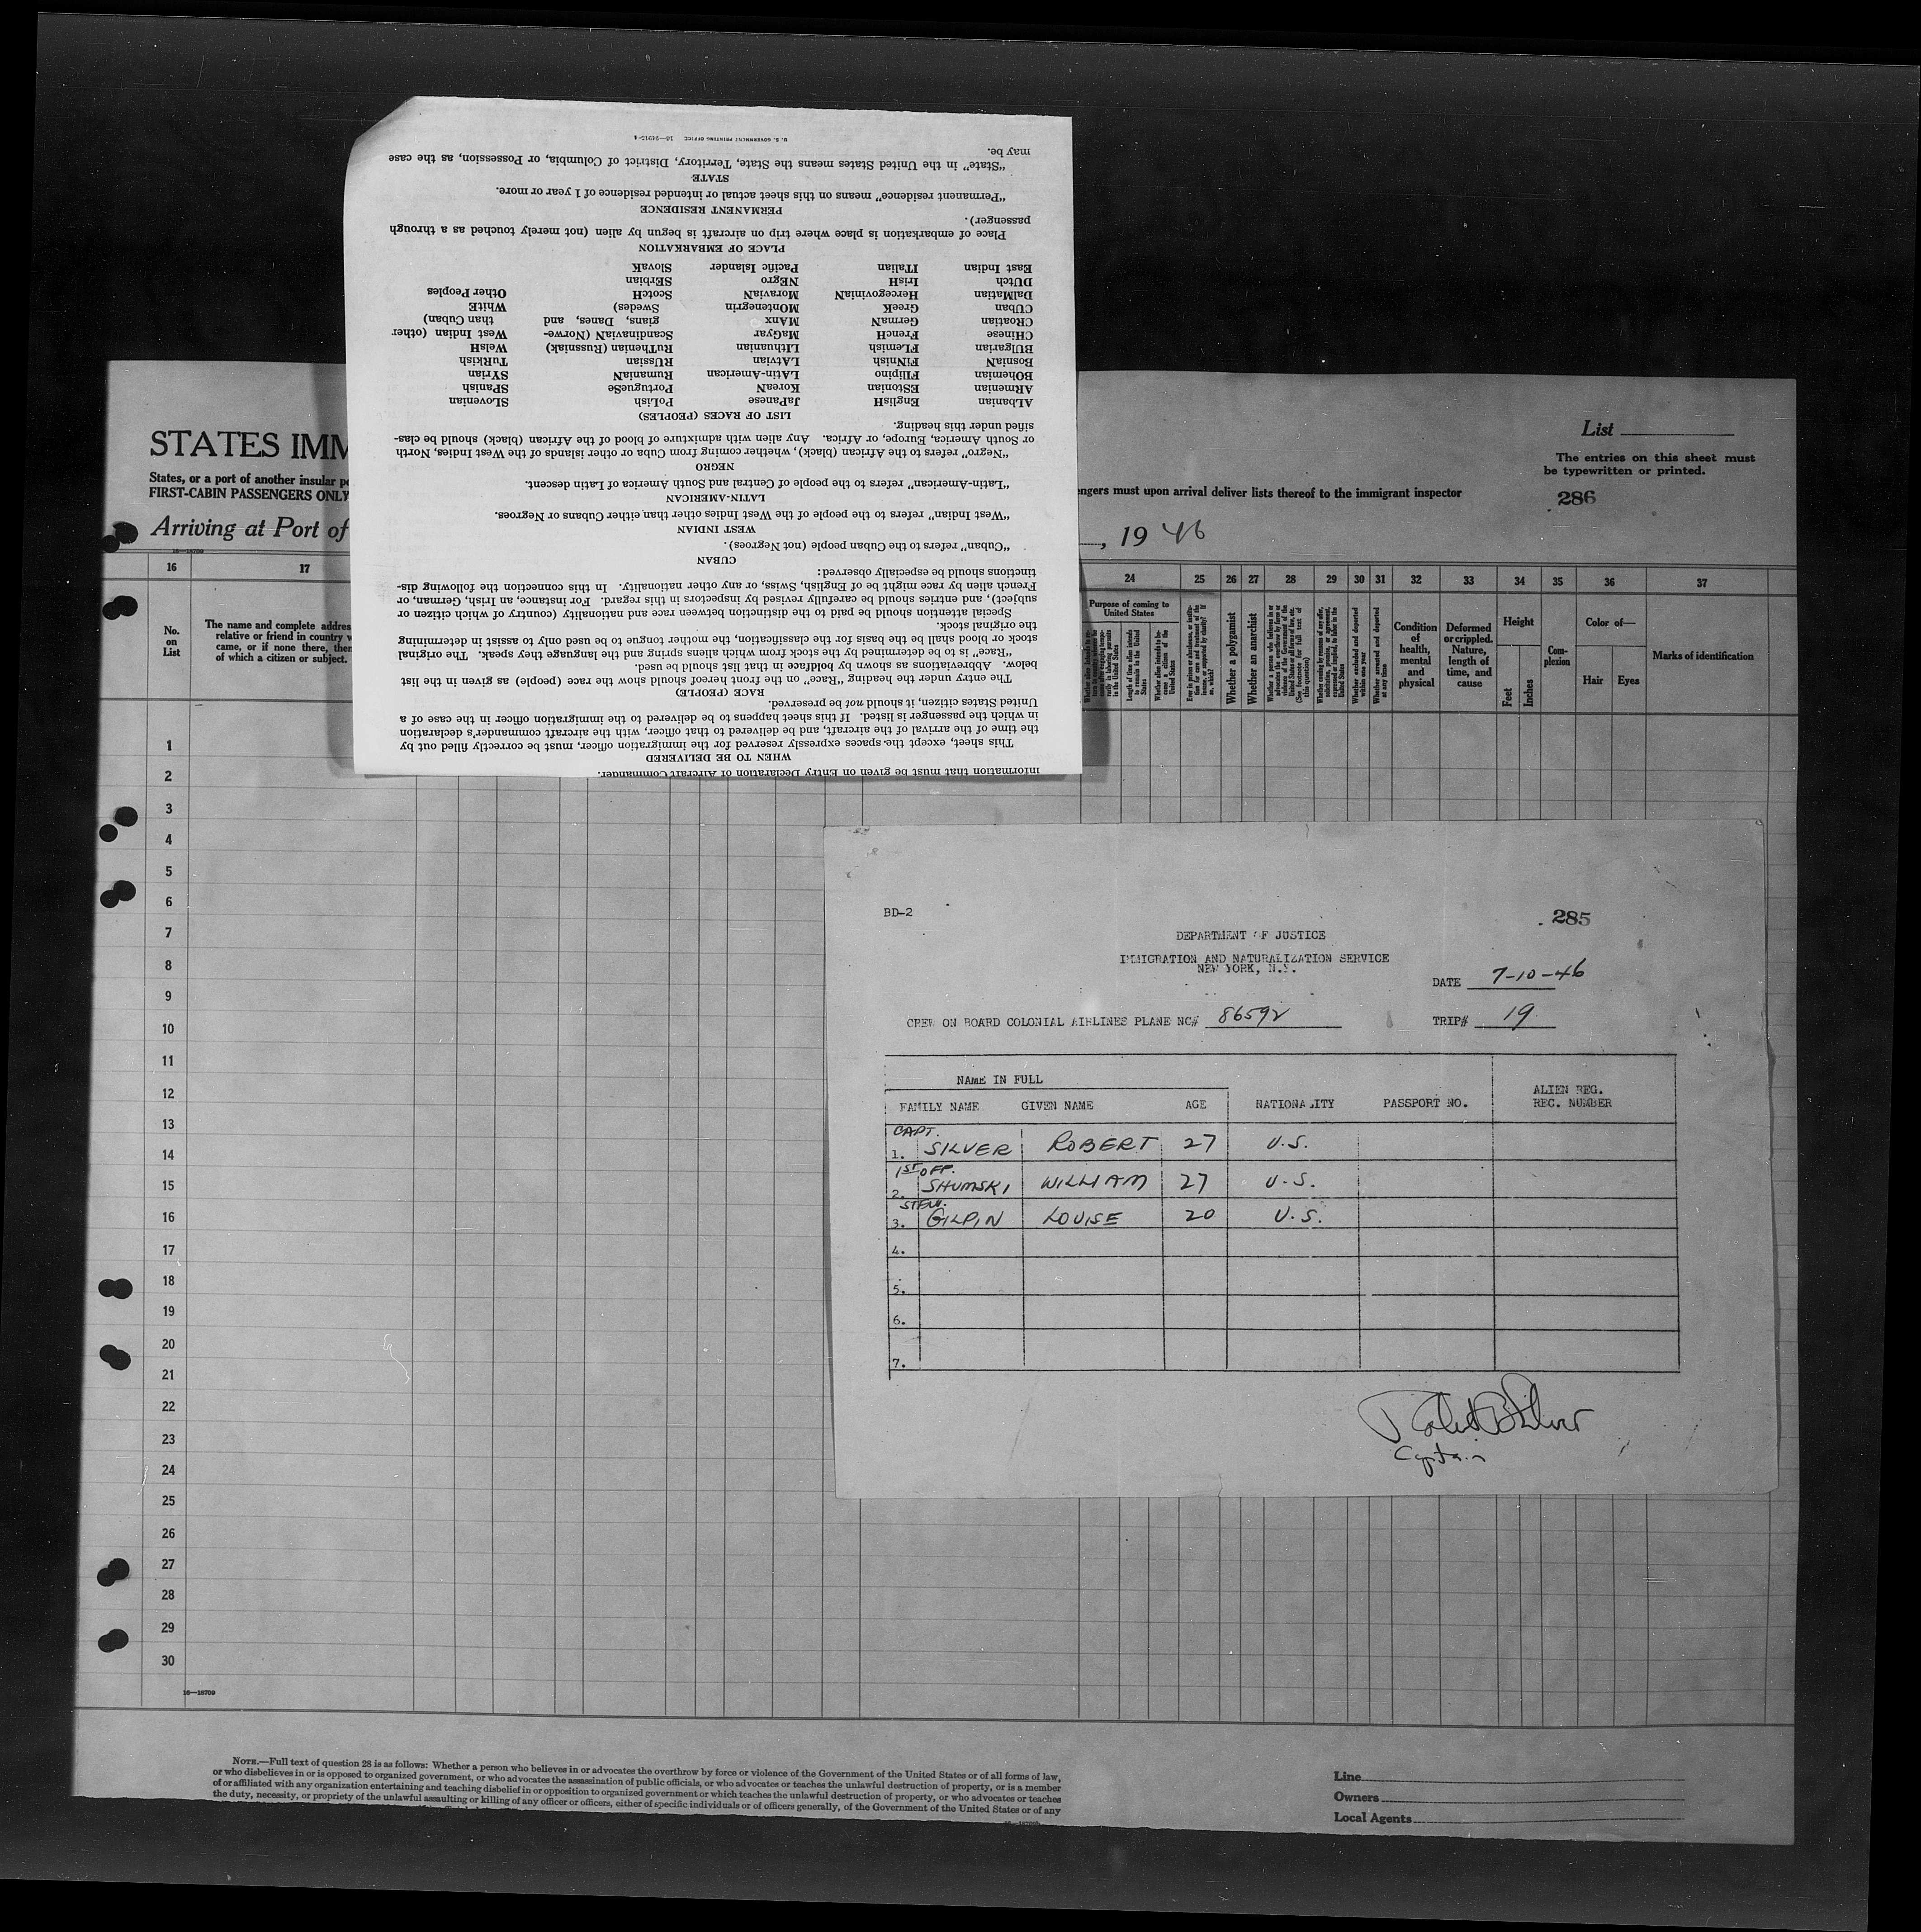 U. S. GOVERNMENT PRINTING OFFICE 16—24915-1
information that must be given on Entry Declaration of Aircraft Commander.
WHEN TO BE DELIVERED
This sheet, except the spaces expressly reserved for the immigration officer, must be correctly filled out by
the time of the arrival of the aircraft, and be delivered to that officer, with the aircraft commander's declaration
in which the passenger is listed. If this sheet happens to be delivered to the immigration officer in the case of a
United States citizen, it should not be preserved.
RACE (PEOPLE)
The entry under the heading “Race” on the front hereof should show the race (people) as given in the list
below. Abbreviations as shown by boldface in that list should be used.
“Race” is to be determined by the stock from which aliens spring and the language they speak. The original
stock or blood shall be the basis for the classification, the mother tongue to be used only to assist in determining
the original stock.
Special attention should be paid to the distinction between race and nationality (country of which citizen or
subject), and entries should be carefully revised by inspectors in this regard. For instance, an Irish, German, or
French alien by race might be of English, Swiss, or any other nationality. In this connection the following dis-
tinctions should be especially observed:
CUBAN
“Cuban” refers to the Cuban people (not Negroes).
WEST INDIAN
“West Indian” refers to the people of the West Indies other than either Cubans or Negroes.
LATIN-AMERICAN
“Latin-American” refers to the people of Central and South America of Latin descent.
NEGRO
“Negro” refers to the African (black), whether coming from Cuba or other islands of the West Indies, North
or South America, Europe, or Africa. Any alien with admixture of blood of the African (black) should be clas-
sified under this heading.
LIST OF RACES (PEOPLES)
ALbanian EnglisH JaPanese PoLish SLovenian
ARmenian EStonian KoreaN PortugueSe SPanish
BOhemian FIlipino LAtin-American RumaniaN SYrian
BosniaN FiNnish LAtvian RUssian TuRkish
BUlgarian FLemish LIthuanian RuThenian (Russniak) WelsH
CHinese FrencH MaGyar ScandinaviaN (Norwe- West Indian (other
CRoatian GermaN MAnx gians, Danes, and than Cuban)
CUban GreeK MOntenegrin Swedes) WhitE
DalMatian HercegoviniaN MoraviaN ScotcH Other Peoples
DUtch IrisH NEgro SErbian
East Indian ITalian Pacific Islander SlovaK
PLACE OF EMBARKATION
Place of embarkation is place where trip on aircraft is begun by alien (not merely touched as a through
passenger).
PERMANENT RESIDENCE
“Permanent residence” means on this sheet actual or intended residence of 1 year or more.
STATE
“State” in the United States means the State, Territory, District of Columbia, or Possession, as the case
may be.
STATES IMM
List
The entries on this sheet must
be typewritten or printed.
States, or a port of another insular
FIRST-CABIN PASSENGERS ONLY
ngers must upon arrival deliver lists thereof to the immigrant inspector
286
Arriving at Port of
, 19 46
16—18709
16 17 24 25 26 27 28 29 30 31 32 33 34 35 36 37
No.
on
List
The name and complete addres
relative or friend in country w
came, or if none there, then
of which a citizen or subject.
Purpose of coming to
United States
Length of time alien intends
to remain in the United
States
Whether alien intends to be-
come a citizen of the
United States
Whether a polygamist
Whether an anarchist
Whether excluded and deported
within one year
Whether arrested and deported
at any time
Condition
of
health,
mental
and
physical
Deformed
or crippled.
Nature,
length of
time, and
cause
Height
Feet
Inches
Com-
plexion
Color of—
Hair
Eyes
Marks of identification
1
2
3
4
5
6
7
8
9
10
11
12
13
14
15
16
17
18
19
20
21
22
23
24
25
26
27
28
29
30
BD-2
285
DEPARTMENT OF JUSTICE
IMMIGRATION AND NATURALIZATION SERVICE
NEW YORK, N.Y.
DATE 7-10-46
CREW ON BOARD COLONIAL AIRLINES PLANE NC# 86592
TRIP# 19
NAME IN FULL
ALIEN REG.
FAMILY NAME GIVEN NAME AGE NATIONALITY PASSPORT NO. REC. NUMBER
CAPT.
1. SILVER ROBERT 27 U.S.
1ST OFF.
2. SHUMSKI WILLIAM 27 U.S.
STEW.
3. GILPIN LOUISE 20 U.S.
4.
5.
6.
7.
Robert B Silver
Captain
16—18709
NOTE.—Full text of question 28 is as follows: Whether a person who believes in or advocates the overthrow by force or violence of the Government of the United States or of all forms of law,
or who disbelieves in or is opposed to organized government, or who advocates the assassination of public officials, or who advocates or teaches the unlawful destruction of property, or is a member
of or affiliated with any organization entertaining and teaching disbelief in or opposition to organized government or which teaches the unlawful destruction of property, or who advocates or teaches
the duty, necessity, or propriety of the unlawful assaulting or killing of any officer or officers, either of specific individuals or of officers generally, of the Government of the United States or of any
Line
Owners
Local Agents